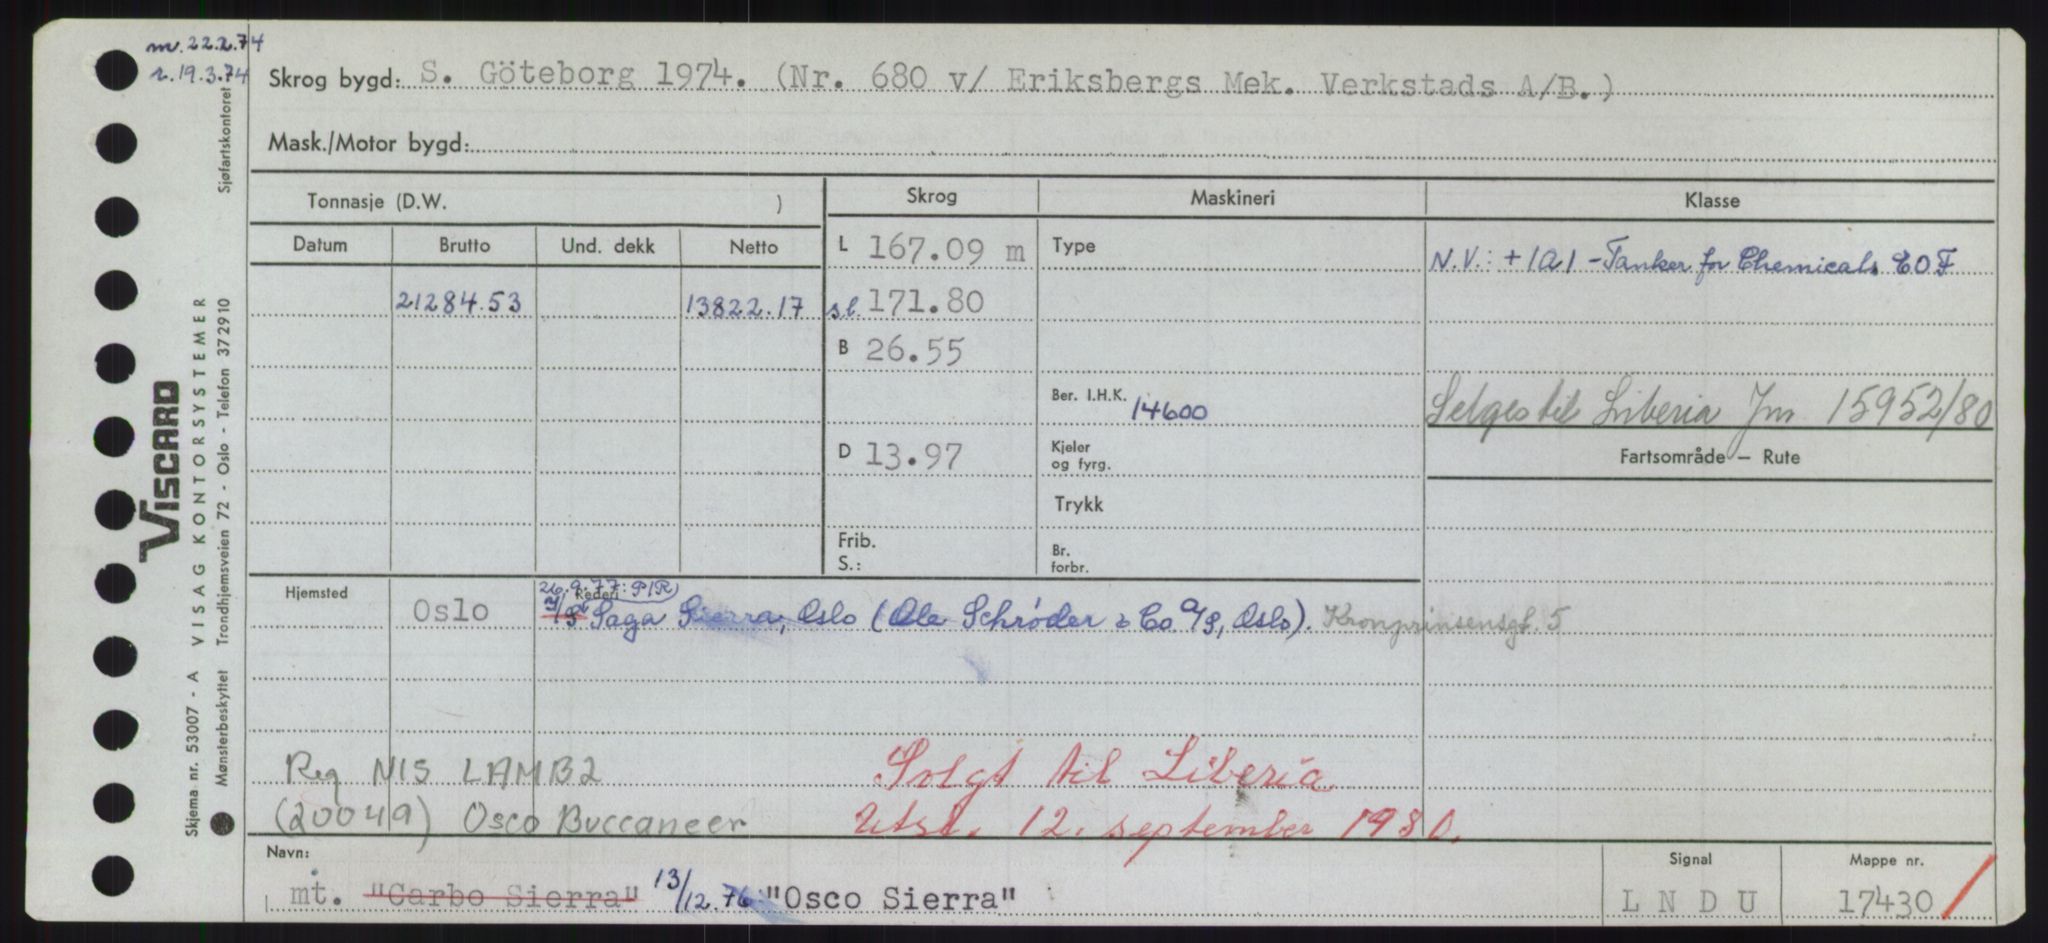 m. 22.2.74
r. 19.3.74
Skrog bygd: S. Göteborg 1974. (Nr. 680 v/ Eriksbergs Mek. Verkstads A/B.)
Mask./Motor bygd:
Tonnasje (D.W. )
Skrog
Maskineri
Klasse
Datum
Brutto
Und. dekk
Netto
L 167.09 m
Type
N.V.: +1A1 - Tanker for Chemicals EO F
21284.53
13822.17
s.l. 171.80
B 26.55
Ber. I.H.K. 14600
Selges til Liberia Jm 15952/80
D 13.97
Kjeler
og fyrg.
Fartsområde — Rute
Trykk
Frib.
S.:
Br.
forbr.
Hjemsted
Oslo
26.9.77: P/R
Rederi
Saga Sierra, Oslo (Ole Schrøder & Co. A/S, Oslo). Kronprinsensgt. 5
Reg NIS LAMB2
Solgt til Liberia
(20049) Osco Buccaneer
Utsl. 12. september 1980.
Navn:
mt. "Carbo Sierra" 13/12.76 "Osco Sierra"
Signal
L N D U
Mappe nr.
17430
VISCARD
VISAG KONTORSYSTEMER
Skjema nr. 53007 - A
Mønsterbeskyttet Trondhjemsveien 72 - Oslo - Telefon 372910
Sjøfartskontoret